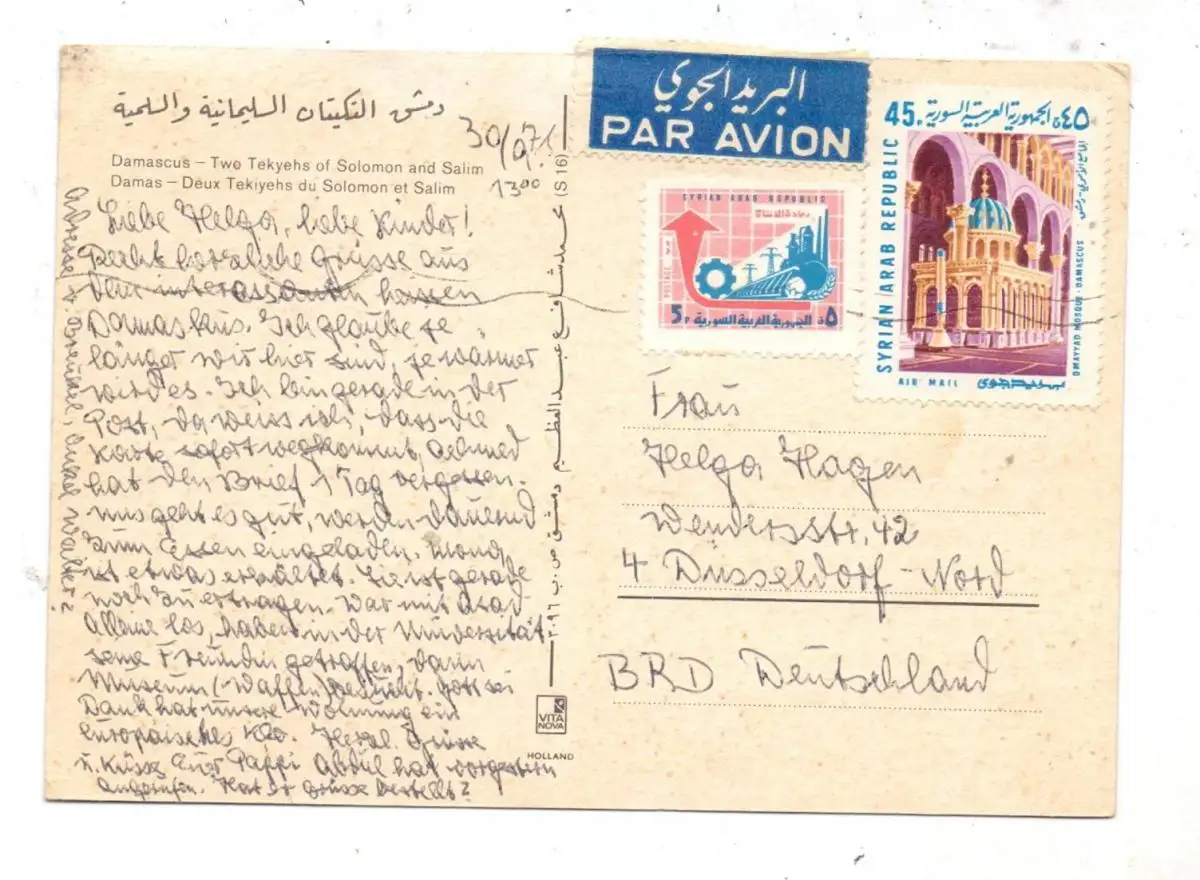 دمشق التكيتان السليمانية والسليمية
Damascus – Two Tekyehs of Solomon and Salim
Damas – Deux Tekiyehs du Solomon et Salim
30/9.71
13⁰⁰
Liebe Helga, liebe Kinder!
Recht herzliche Grüsse aus
dem interessanten heissen
Damaskus. Ich glaube je
länger wir hier sind, je wärmer
wird es. Ich bin gerade in der
Post, da weiss ich, dass die
Karte sofort wegkommt, Achmed
hat den Brief 1 Tag vergessen.
Uns geht es gut, werden dauernd
zum Essen eingeladen.
ist etwas erkältet. Hier ist gerade
noch zu ertragen. War mit Asad
alleine los, haben in der Universität
seine Freundin getroffen, dann
Museum (Waffen) besucht. Gott sei
Dank hat unsere Wohnung ein
europäisches Klo. Herzl. Grüsse
u. Küsse Euer Pappi Abdul hat vorgestern
angerufen. Hat er Grüsse bestellt?
Adresse v. Onkel Walter?
(IS 16)
عدنان شافع عبد العظيم دمشق ص.ب ٢٠٩٦
VITA
NOVA
HOLLAND
البريد الجوي
PAR AVION
SYRIAN ARAB REPUBLIC
POSTAGE
5P الجمهورية العربية السورية ٥ق
45P الجمهورية العربية السورية ٤٥ق
SYRIAN ARAB REPUBLIC
OMAYYAD MOSQUE - DAMASCUS
AIR MAIL بريد جوي
Frau
Helga Hagen
Wendersstr. 42
4 Düsseldorf-Nord
BRD Deutschland